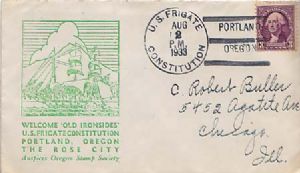 WELCOME 'OLD IRONSIDES'
U.S. FRIGATE CONSTITUTION
PORTLAND, OREGON
THE ROSE CITY
Auspices Oregon Stamp Society
U.S. FRIGATE
AUG
2
P.M.
1933
CONSTITUTION
PORTLAND
OREGON
C. Robert Butler
5452 Agatite Ave
Chicago.
Ill.